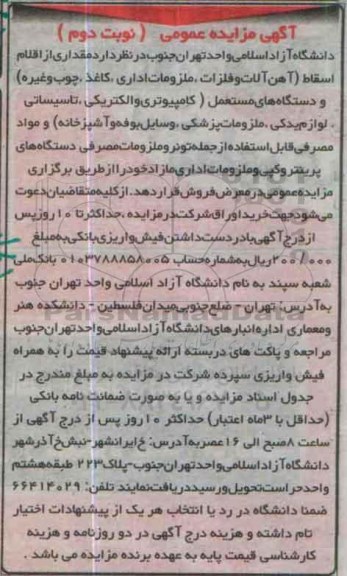 آگهی مزایده عمومی ( نوبت دوم )
دانشگاه آزاد اسلامی واحد تهران جنوب در نظر دارد مقداری از اقلام
اسقاط (آهن آلات وفلزات ،ملزومات اداری ،کاغذ ،چوب وغیره)
و دستگاه های مستعمل ( کامپیوتری والکتریکی ،تاسیساتی
، لوازم یدکی ،ملزومات پزشکی ،وسایل بوفه وآشپزخانه) و مواد
مصرفی قابل استفاده از جمله تونر وملزومات مصرفی دستگاه های
پرینتر وکپی وملزومات اداری مازاد خود را از طریق برگزاری
مزایده عمومی در معرض فروش قرار دهد. از کلیه متقاضیان دعوت
می شود جهت خرید اوراق شرکت در مزایده ،حداکثر تا ۱۰ روز پس
از درج آگهی با در دست داشتن فیش واریزی بانکی به مبلغ
۲۰۰/۰۰۰ ریال به شماره حساب ۰۱۰۳۷۸۸۸۵۸۰۰۵ بانک ملی
شعبه سپند به نام دانشگاه آزاد اسلامی واحد تهران جنوب
به آدرس: تهران - ضلع جنوبی میدان فلسطین - دانشکده هنر
ومعماری اداره انبارهای دانشگاه آزاد اسلامی واحد تهران جنوب
مراجعه و پاکت های دربسته ارائه پیشنهاد قیمت را به همراه
فیش واریزی سپرده شرکت در مزایده به مبلغ مندرج در
جدول اسناد مزایده و یا به صورت ضمانت نامه بانکی
(حداقل با ۳ماه اعتبار) حداکثر ۱۰ روز پس از درج آگهی از
ساعت ۸صبح الی ۱۶ عصر به آدرس: خ ایرانشهر-نبش خ آذرشهر
دانشگاه آزاد اسلامی واحد تهران جنوب-پلاک ۲۲۳ طبقه هشتم
واحد حراست تحویل و رسید دریافت نمایند تلفن: ۶۶۴۱۴۰۲۹
ضمنا دانشگاه در رد یا انتخاب هر یک از پیشنهادات اختیار
تام داشته و هزینه درج آگهی در دو روزنامه و هزینه
کارشناسی قیمت پایه به عهده برنده مزایده می باشد .